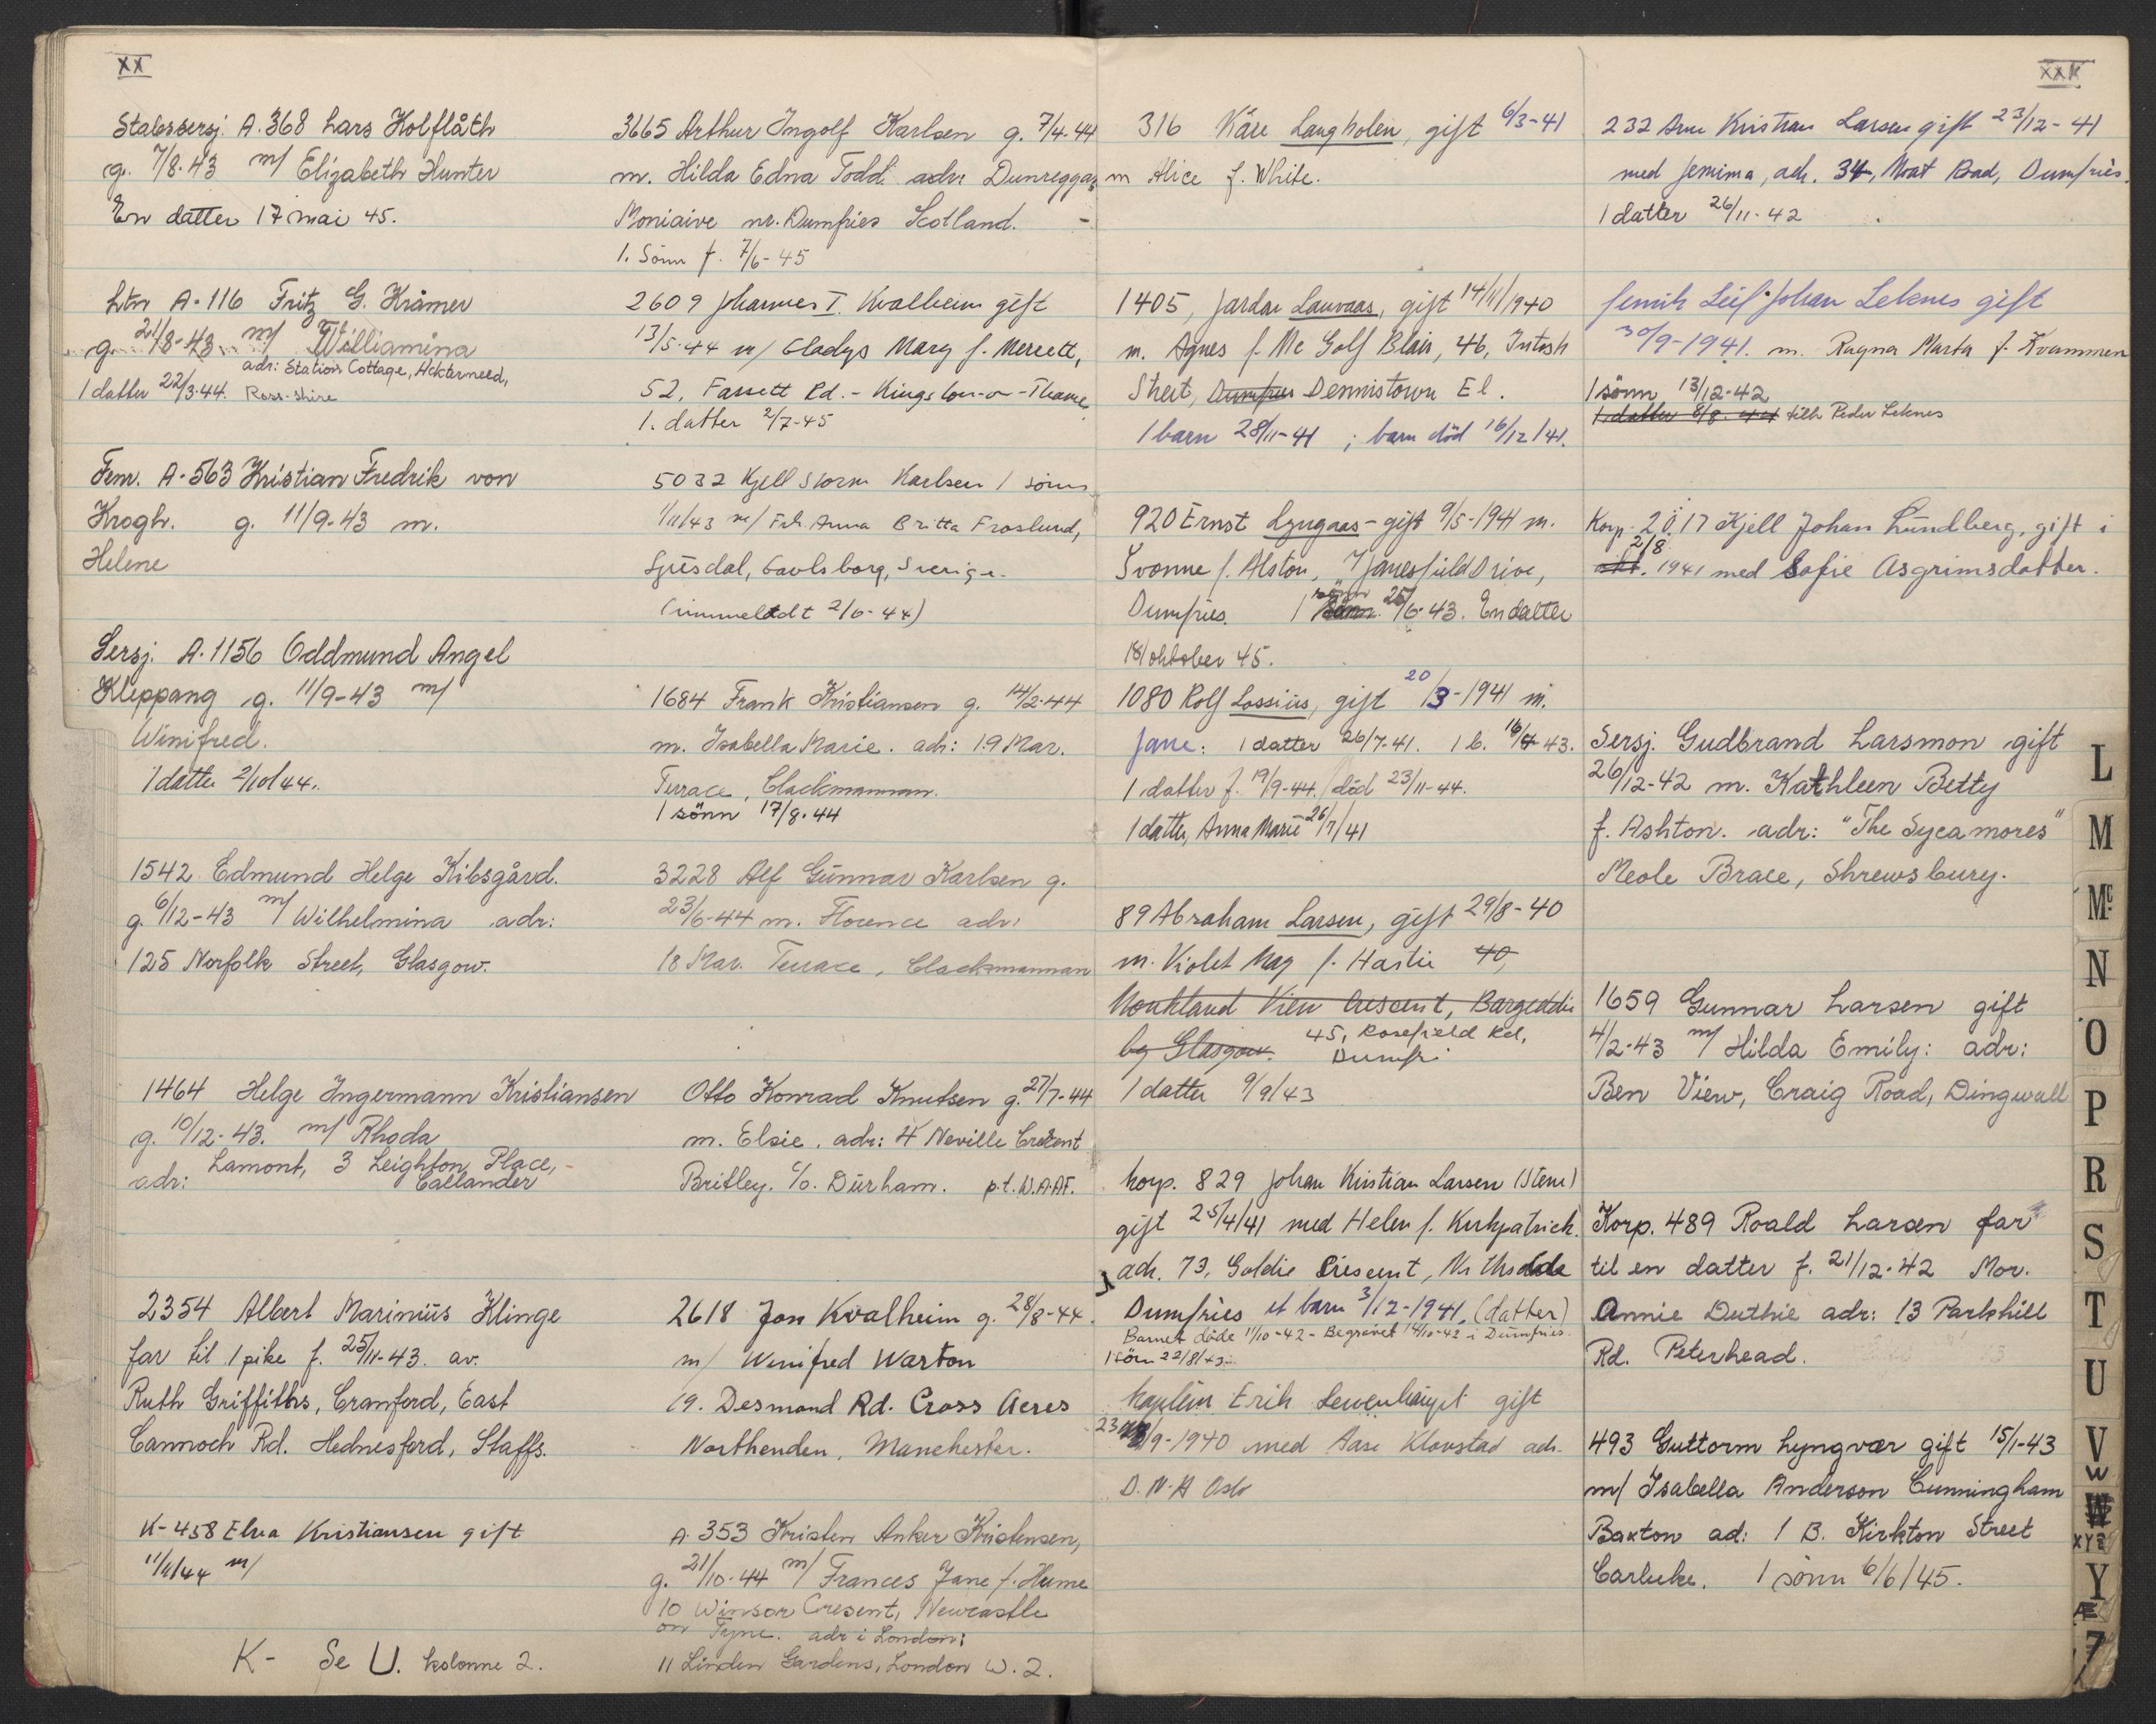 XX
Stabssersj. A.368 Lars Kolflåth
g. 7/8-43 m/ Elizabeth Hunter
En datter 17 mai 45.
Ltn A-116 Fritz G. Krämer
g. 21/8-43 m/ Williamina
adr: Station Cottage, Ackterneed,
1 datter 22/3-44. Ross-shire
Fenr. A-563 Kristian Fredrik von
Krogh. g. 11/9-43 m.
Helene
Sersj. A.1156 Oddmund Angel
Kleppang g. 11/9-43 m/
Winifred.
1 datter 2/10/44.
1542 Edmund Helge Kibsgård.
g. 6/12-43 m/ Wilhelmina adr:
125 Norfolk Street, Glasgow.
1464 Helge Ingermann Kristiansen
g. 10/12-43. m/ Rhoda
adr: Lamont, 3 Leighton Place,
Callander
2354 Albert Marinius Klinge
far til 1 pike f. 25/11-43. av.
Ruth Griffiths, Cranford, East
Cannoch Rd. Hednesford, Staffs.
K-458 Elna Kristiansen gift
11/11/44 m/
K- Se U. kolonne 2.
3665 Arthur Ingolf Karlsen g. 7/4-44
m. Hilda Edna Todd adr: Dunreggan
Moniaive nr. Dumfries Scotland. -
1. Sønn f. 7/6-45
2609 Johannes I. Kvalheim gift
13/5-44 m/ Gladys Mary f. Mercett,
52, Fassett Rd. - Kingston-o-Thame
1. datter 2/7-45
5032 Kjell Storm Karlsen 1 sønn
1/11/43 m/ Frk. Anna Britta Froslund,
Ljusdal, Gavlsborg, Sverige.
(innmeldt 2/6-44)
1684 Frank Kristiansen g. 14/2-44
m. Isabella Marie. adr: 19 Mar.
Terrace, Clackmannan.
1 sönn 17/8-44
3228 Alf Gunnar Karlsen g.
23/6-44 m. Florence adr:
18 Mar. Terrace, Clackmannan
Otto Konrad Knutsen g. 27/7-44
m. Elsie. adr: 4 Neville Cresent
Britley. C/o. Durham. p.t. W.A.A.F.
2618 Jon Kvalheim g. 28/8-44.
m/ Winifred Warton
19. Desmond Rd. Cross Acres
Northenden, Manchester.
A. 353 Kristen Anker Kristensen,
g. 21/10-44 m/ Frances Jane f. Hume
10 Winsor Cresent, Newcastle
on Tyne. adr i London:
11 Linden Gardens, London W.2.
316 Kåre Langholen, gift 6/3-41
m Alice f. White.
1405, Jardar Lauvaas, gift 14/11/1940
m. Agnes f. Mc Golf Blair, 46, Intosh
Street, Dumfries Dennistown El.
1 barn 28/11-41 ; barn död 16/12/41.
920 Ernst Lyngaas - gift 9/5-1941 m.
Yvonne f. Alston, 7 Janesfield Drive,
Dumfries. 1 sønn 25/6-43. En datter
18/oktober 45.
1080 Rolf Lossius, gift 20/3-1941 m.
Jane: 1 datter 26/7-41. 1 b. 16/4 43.
1 datter f. 19/9-44. / död 23/11-44.
1 datter, Anna Marie 26/7/41
89 Abraham Larsen, gift 29/8-40
m. Violet May f. Hastie 40,
Monkland View Crescent, Bargeddie
by Glasgow. 45, Rosefield Rd,
Dumfri
1 datter 9/9/43
Korp. 829 Johan Kristian Larsen (Stene)
gift 25/4/41 med Helen f. Kirkpatrick.
adr. 73, Goldie Crescent,
Dumfries et barn 3/12-1941. (datter)
Barnet døde 11/10-42 - Begravet 14/10-42 i Dumfries.
1 sönn 22/8/43.
Kaptein Erik Lewenhaupt gift
23/9-1940 med Aase Klovstad adr.
D.N.A Oslo
XXI
232 Arne Kristian Larsen gift 23/12-41
med Jemima, adr. 34, Moat Road, Dumfries.
1 datter 26/11-42
Fenrik Leif Johan Leknes gift
30/9-1941. m. Ragna Marta f. Kvammen
1 sönn 13/12-42
1 datter 8/8-44 tilh Peder Leknes
Korp. 2017 Kjell Johan Lundberg, gift i
2/8
okt. 1941 med Sofie Asgrimsdotter.
Sersj. Gudbrand Larsmon gift
26/12-42 m. Kathleen Betty
f. Ashton. adr: "The Sycamores"
Meole Brace, Shrewsbury.
1659 Gunnar Larsen gift
4/2-43 m/ Hilda Emily: adr:
Ben View, Craig Road, Dingwall
Korp. 489 Roald Larsen far
til en datter f. 21/12-42 Mor.
Annie Duthie adr: 13 Parkhill
Rd. Peterhead.
493 Guttorm Lyngvær gift 15/1-43
m/ Isabella Anderson Cunningham
Baxton ad: 1 B. Kirkton Street
Carluke. 1 sønn 6/6/45.
L
M
Mc
N
O
P
R
S
T
U
V
W
W
XYZ
Y
Æ
Z